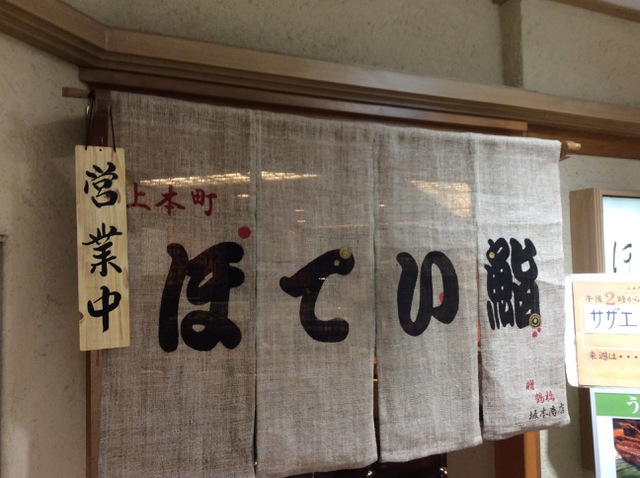 営業中
上本町
ほてい鮨
贈
鶴橋
坂本商店
午後2時から
サザエ
来週は・・・
う